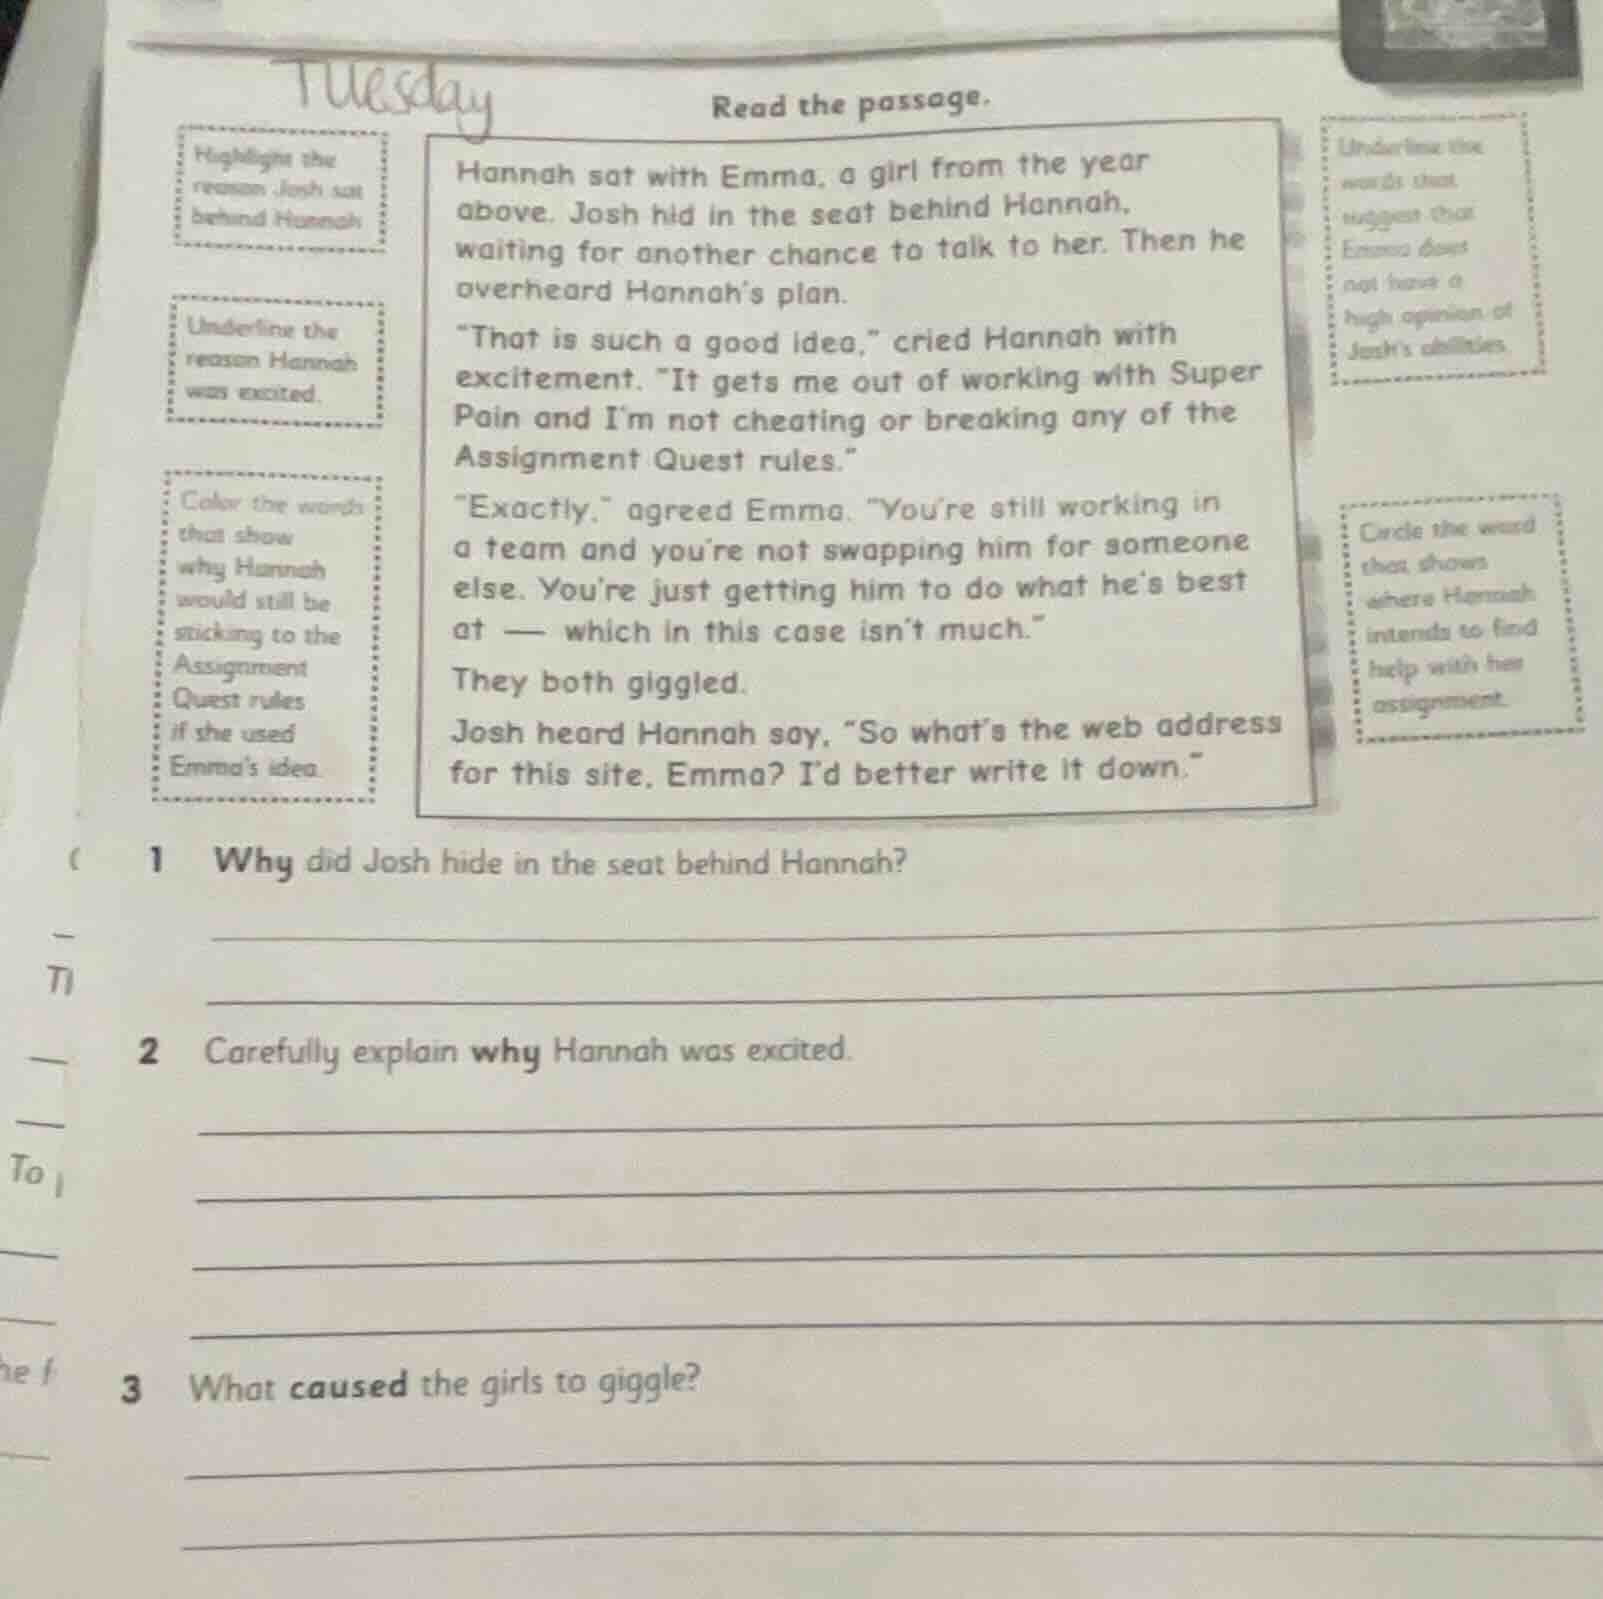 Tuesday
Read the passage.
Highlight the
reason Josh sat
behind Hannah
Underline the
reason Hannah
was excited.
Color the words
that show
why Hannah
would still be
sticking to the
Assignment
Quest rules
if she used
Emma's idea.
Hannah sat with Emma, a girl from the year
above. Josh hid in the seat behind Hannah,
waiting for another chance to talk to her. Then he
overheard Hannah's plan.
"That is such a good idea," cried Hannah with
excitement. "It gets me out of working with Super
Pain and I'm not cheating or breaking any of the
Assignment Quest rules."
"Exactly," agreed Emma. "You're still working in
a team and you're not swapping him for someone
else. You're just getting him to do what he's best
at — which in this case isn't much."
They both giggled.
Josh heard Hannah say, "So what's the web address
for this site, Emma? I'd better write it down."
Underline the
words that
suggest that
Emma does
not have a
high opinion of
Josh's abilities.
Circle the word
that shows
where Hannah
intends to find
help with her
assignment.
1 Why did Josh hide in the seat behind Hannah?
2 Carefully explain why Hannah was excited.
3 What caused the girls to giggle?
To